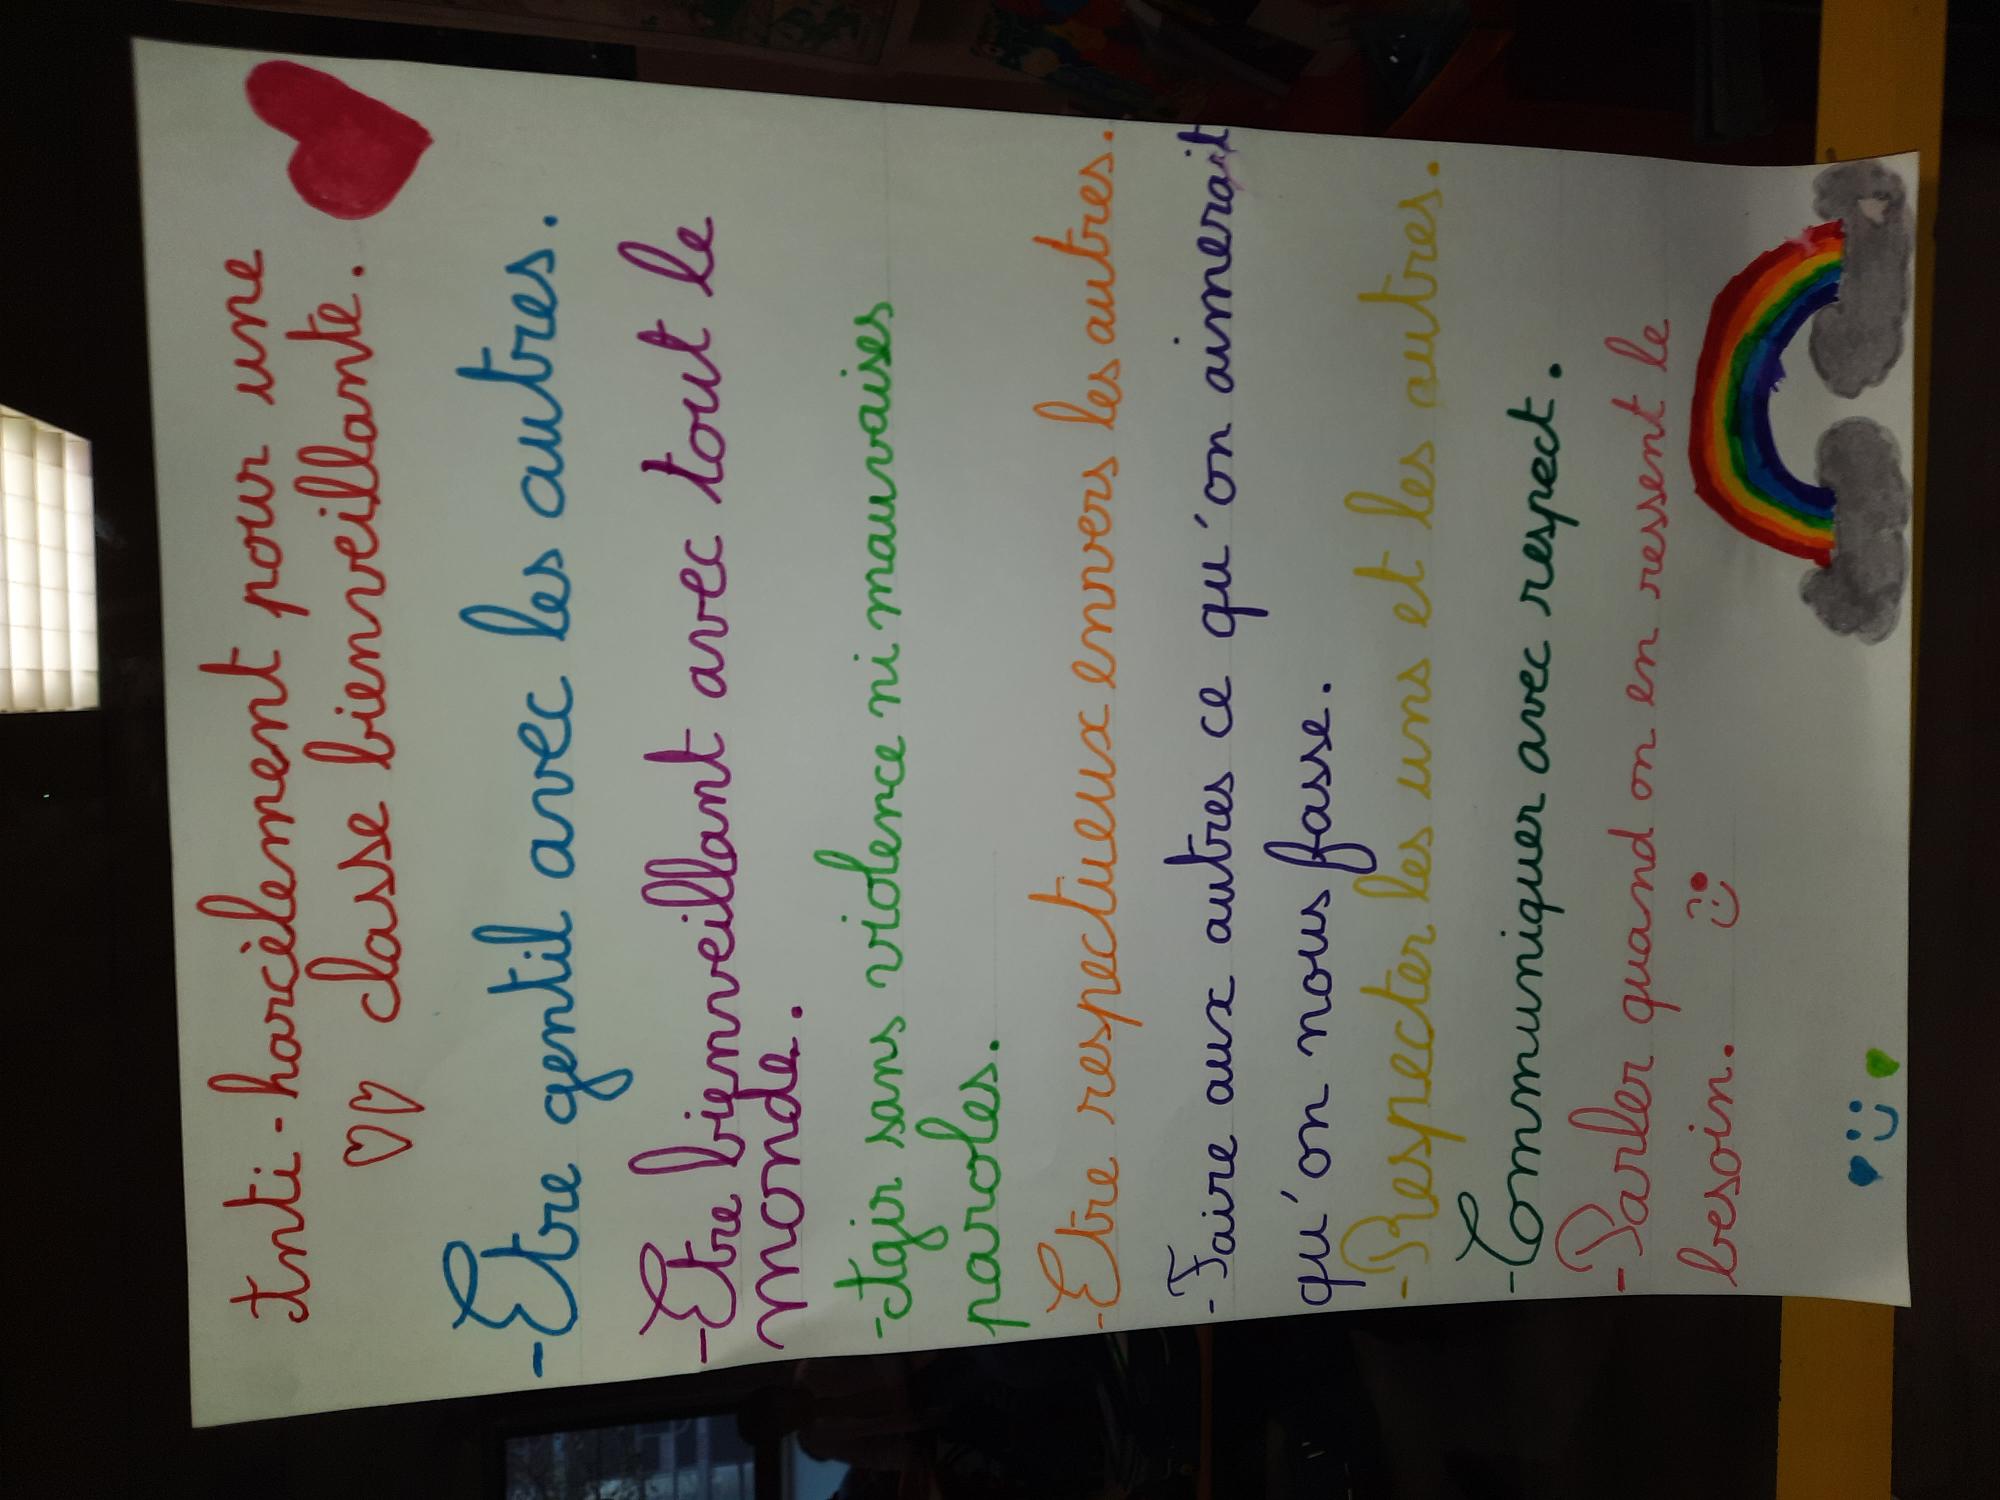 Anti-harcèlement pour une
classe bienveillante.
-Etre gentil avec les autres.
-Etre bienveillant avec tout le
monde.
-Agir sans violence ni mauvaises
paroles.
-Etre respectueux envers les autres.
-Faire aux autres ce qu'on aimerait
qu'on nous fasse.
-Respecter les uns et les autres.
-Communiquer avec respect.
-Parler quand on en ressent le
besoin.